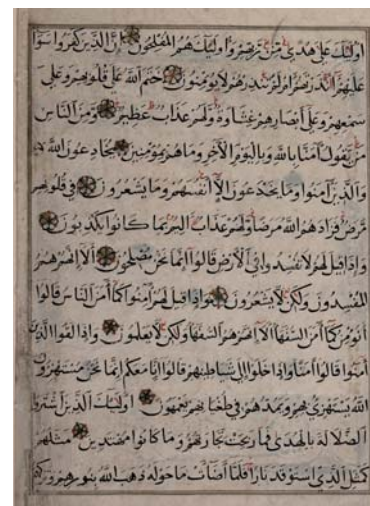 اولئك على هدى من ربهم واولئك هم المفلحون ان الذين كفروا سوآ
عليهم ءانذرتهم ام لم تنذرهم لا يؤمنون ختم الله على قلوبهم وعلى
سمعهم وعلى ابصارهم غشاوة ولهم عذاب عظيم ومن الناس
من يقول آمنا بالله وباليوم الآخر وما هم بمؤمنين يخادعون الله
والذين آمنوا وما يخدعون الا انفسهم وما يشعرون في قلوبهم
مرض فزادهم الله مرضا ولهم عذاب اليم بما كانوا يكذبون
واذا قيل لهم لا تفسدوا في الارض قالوا انما نحن مصلحون الا انهم هم
المفسدون ولكن لا يشعرون واذا قيل لهم آمنوا كما آمن الناس قالوا
انؤمن كما آمن السفهآ الا انهم هم السفهآ ولكن لا يعلمون واذا لقوا الذين
آمنوا قالوا آمنا واذا خلوا الى شياطينهم قالوا انا معكم انما نحن مستهزؤن
الله يستهزئ بهم ويمدهم في طغيانهم يعمهون اولئك الذين اشتروا
الضلالة بالهدى فما ربحت تجارتهم وما كانوا مهتدين مثلهم
كمثل الذي استوقد نارا فلما اضآت ما حوله ذهب الله بنورهم